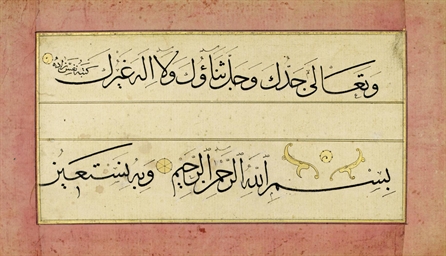 وتعالى جدك وجل ثناؤك ولا اله غيرك
بسم الله الرحمن الرحيم وبه نستعين